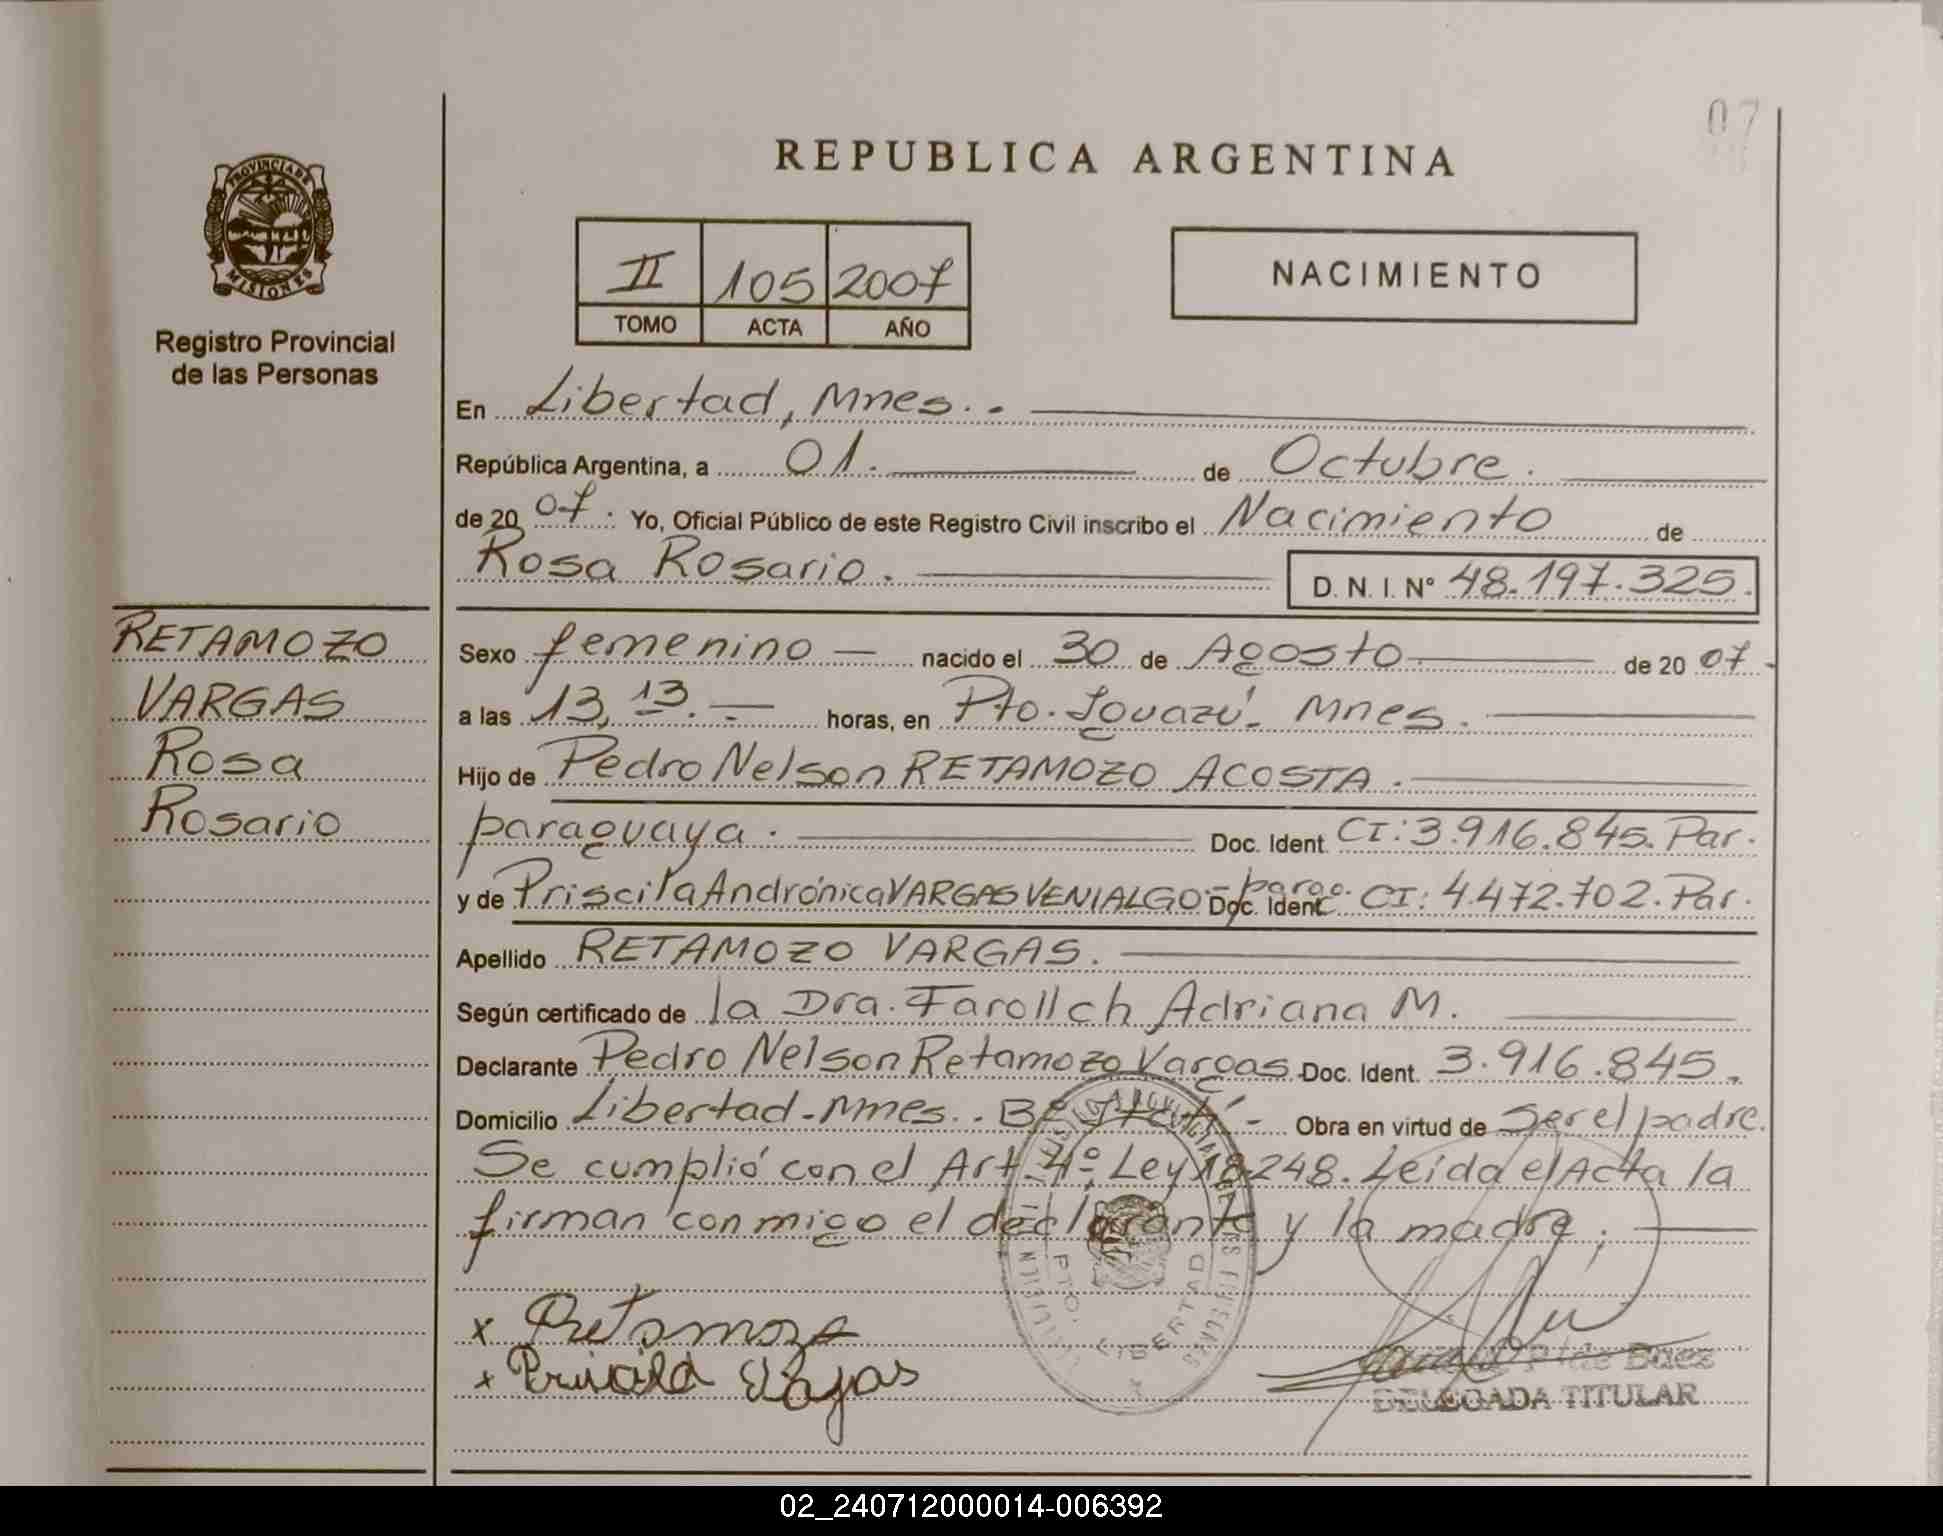 07
REPUBLICA ARGENTINA
PROVINCIA DE
MISIONES
Registro Provincial
de las Personas
II 105 2007
TOMO ACTA AÑO
NACIMIENTO
En Libertad, Mnes..-
República Argentina, a 01. de Octubre.
de 20 07. Yo, Oficial Público de este Registro Civil inscribo el Nacimiento de
Rosa Rosario. D. N. I. N° 48.197.325.
RETAMOZO
VARGAS
Rosa
Rosario
Sexo femenino — nacido el 30 de Agosto de 20 07.-
a las 13,13.- horas, en Pto. Iguazú- Mnes.
Hijo de Pedro Nelson RETAMOZO ACOSTA.
paraguaya. Doc. Ident. CI: 3.916.845. Par.
y de Priscila Andrónica VARGAS VENIALGO- parag. Doc. Ident. CI: 4.472.702. Par.
Apellido RETAMOZO VARGAS.
Según certificado de la Dra. Farollch Adriana M.
Declarante Pedro Nelson Retamozo Vargas. Doc. Ident. 3.916.845.
Domicilio Libertad-Mnes.. Obra en virtud de Ser el padre.
Se cumplió con el Art. 4º Ley 18.248. Leída el Acta la
firman conmigo el declarante y la madre;
x Retamozo
x Pricila Vargas
PTO. LIBERTAD
de Baez
DELEGADA TITULAR
02_240712000014-006392